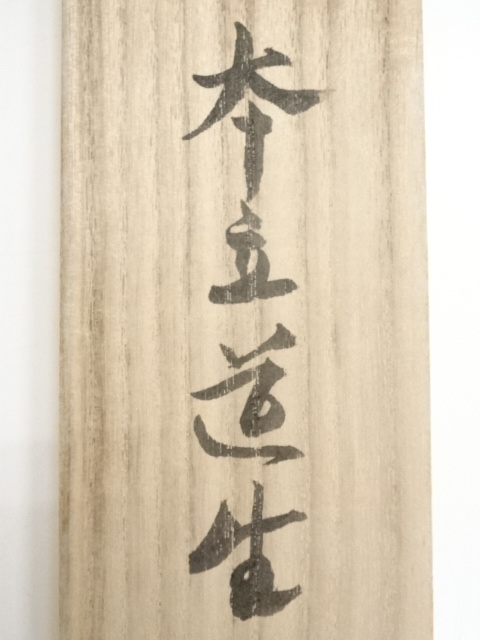 本立道生